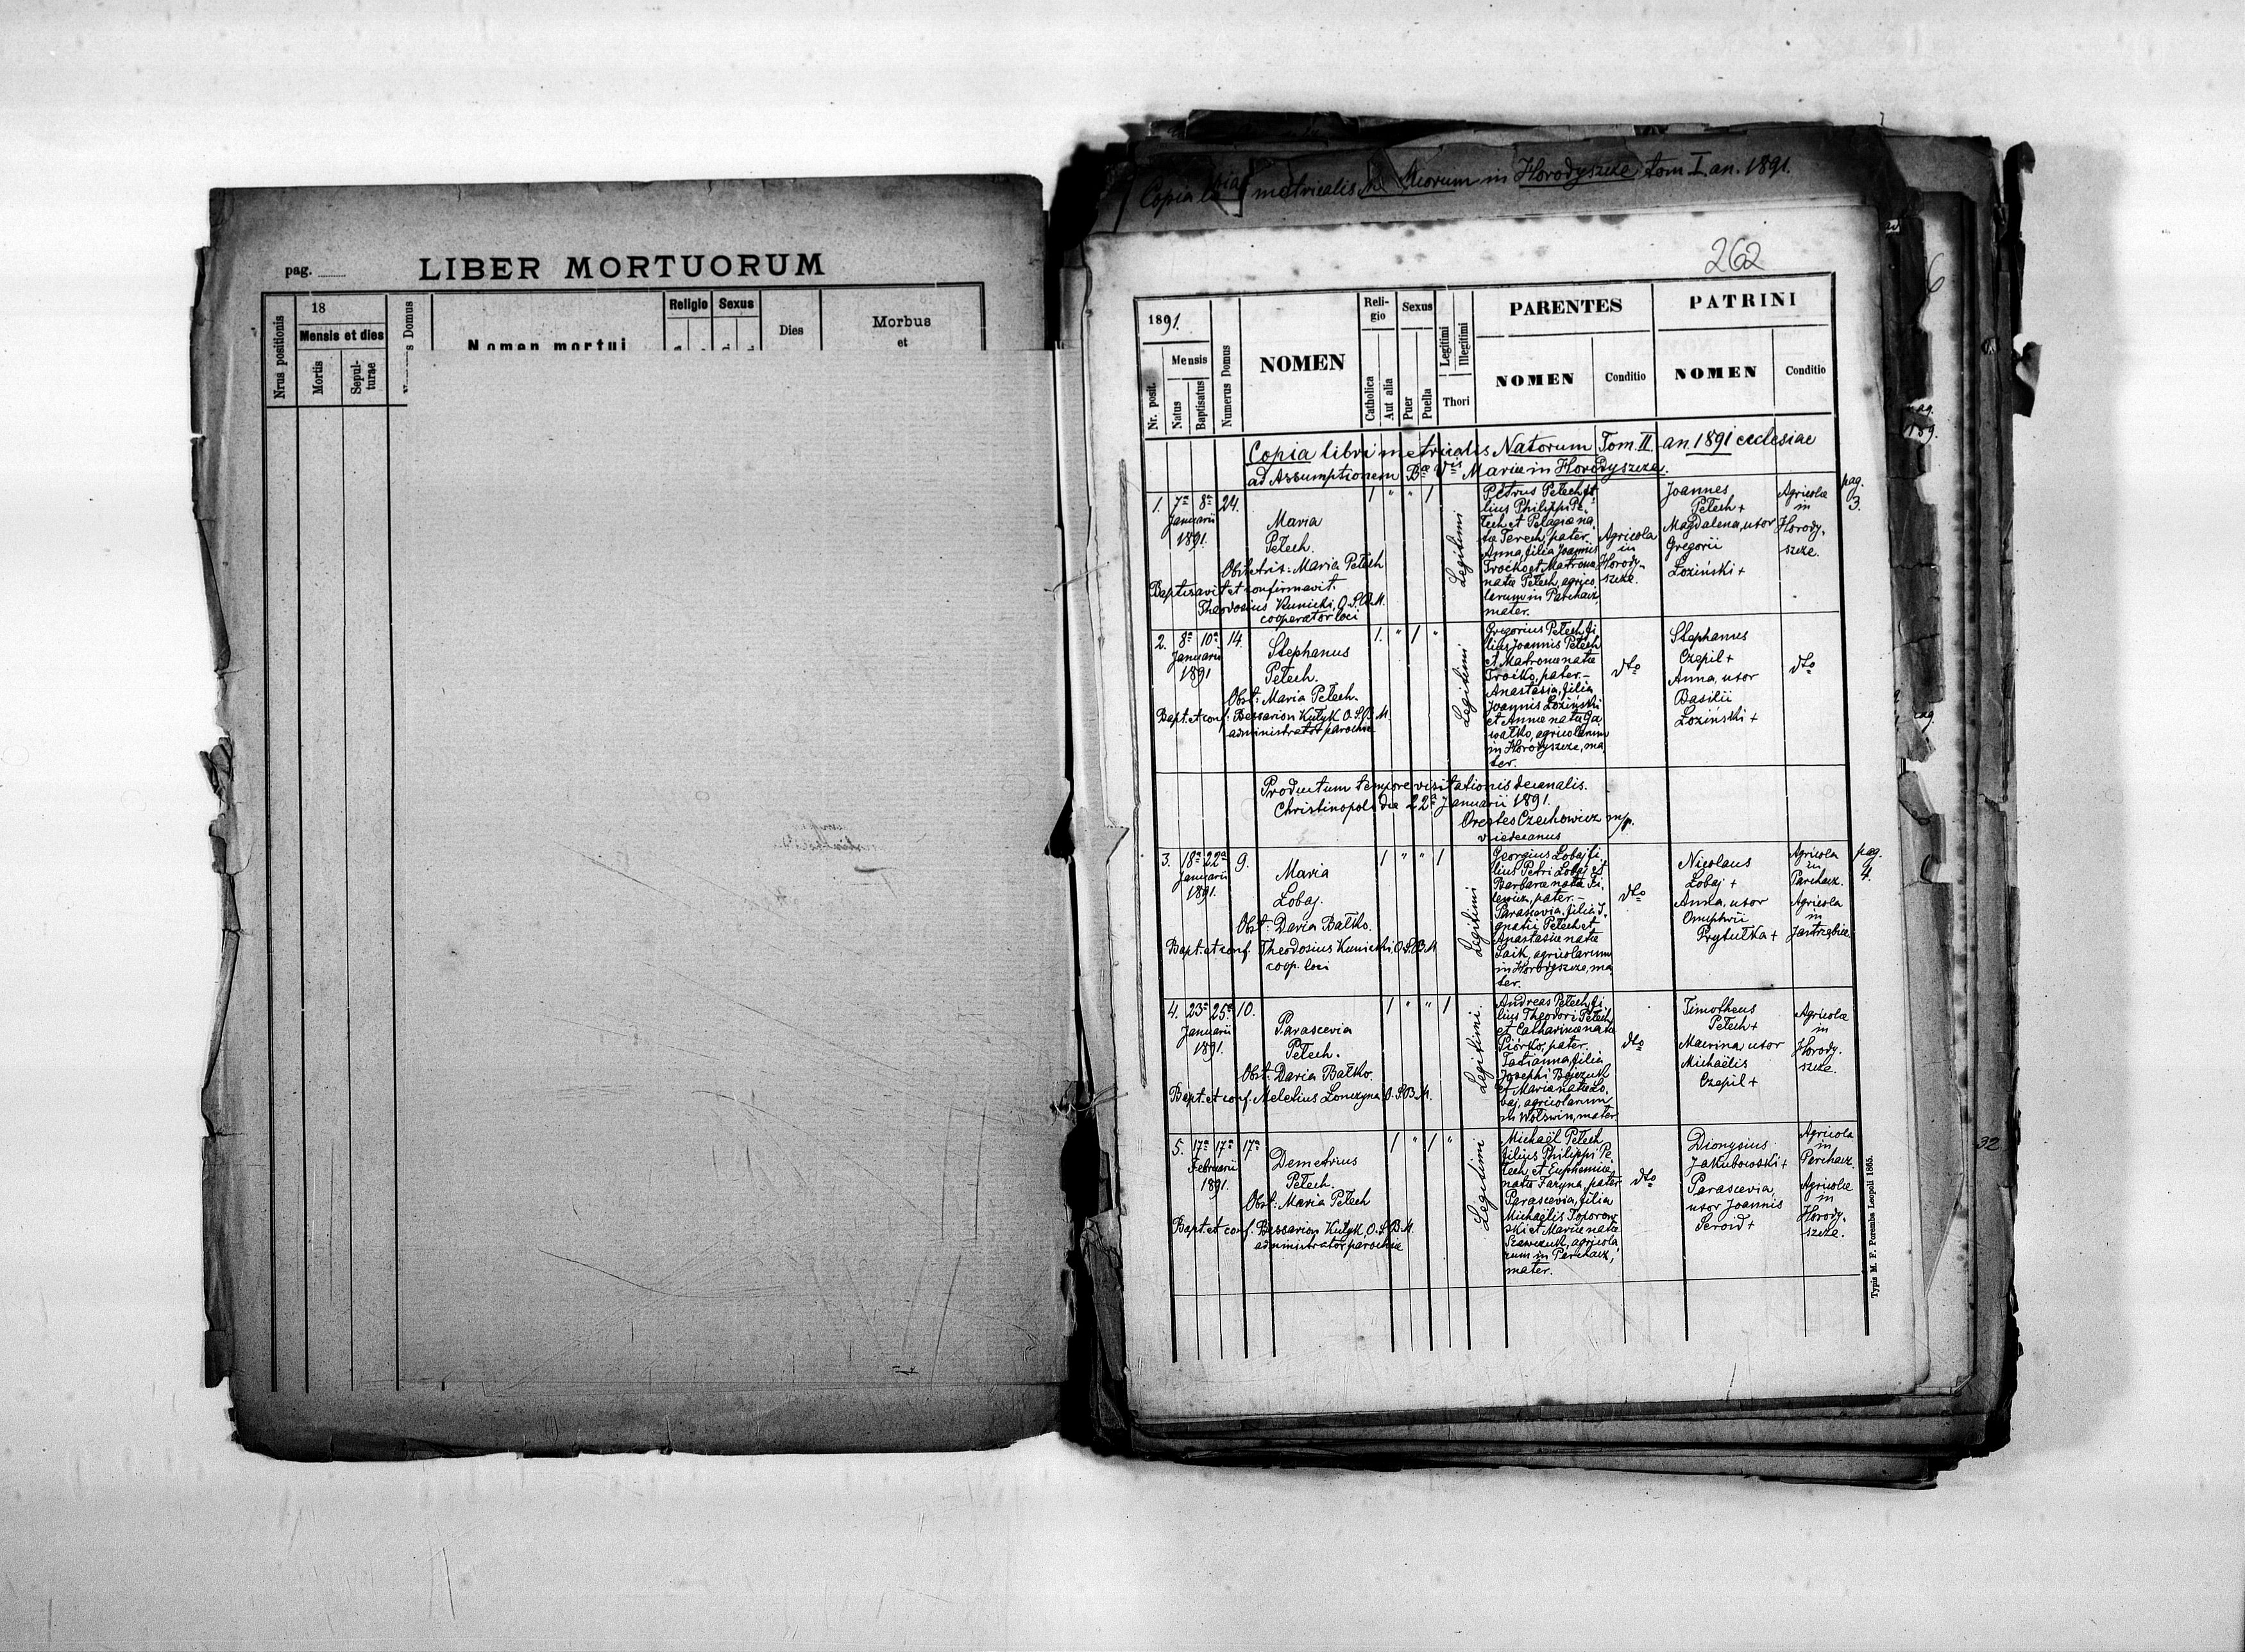 pag.
LIBER MORTUORUM
Nrus positionis
18
Mensis et dies
Mortis
Sepul-
turae
Domus
Nomen mortui
Religio
Sexus
Dies
Morbus
et
metricalis
in Horodyszcze tom I. an. 1891.
262
1891.
Nr. posit.
Mensis
Natus
Baptisatus
Numerus Domus
NOMEN
Reli-
gio
Catholica
Aut alia
Sexus
Puer
Puella
Legitimi
Illegitimi
Thori
PARENTES
NOMEN
Conditio
PATRINI
NOMEN
Conditio
Copia libri metricalis Natorum Tom. II. an. 1891 ecclesiae
ad Assumptionem Bae Vis Mariae in Horodyszcze.
pag.
3.
1. 7a 8a 24.
Januarii
1891.
Maria
Pełech.
Obstetrix: Maria Pełech
Baptisavit et confirmavit
Theodosius Kunicki, O.S.B.M.
cooperator loci
1 " " 1
Legitimi
Petrus Pełech fi-
lius Philippi Pe-
łech et Pelagiae na-
tae Terech, pater.
Anna, filia Joannis
Troćko et Matronae
natae Pełech, agrico-
larum in Parchacz,
mater.
Agricola
in
Horody-
szcze.
Joannes
Pełech +
Magdalena, uxor
Gregorii
Łoziński +
Agricolae
in
Horody-
szcze.
2. 8a 10a 14.
Januarii
1891
Stephanus
Pełech.
Obst: Maria Pełech.
Bapt. et conf: Bessarion Kułyk O.S.B.M.
administrator parochiae
1. " 1 "
Legitimi
Gregorius Pełech, fi-
lius Joannis Pełech
et Matronae natae
Troćko, pater. –
Anastasia, filia
Joannis Łoziński
et Annae natae Ga-
wałko, agricolarum
in Horodyszcze, ma-
ter.
dto
Stephanus
Czepil +
Anna, uxor
Basilii
Łoziński +
dto
Productum tempore visitationis decanalis.
Christinopoli die 22a Januarii 1891.
Orestes Czechowicz mp.
vicedecanus
pag.
4.
3. 18a 22a 9.
Januarii
1891.
Maria
Łobaj.
Obst: Daria Bałko.
Bapt. et conf. Theodosius Kunicki, O.S.B.M.
coop. loci
1 " " 1
Legitimi
Georgius Łobaj fi-
lius Petri Łobaj et
Barbarae natae
pater. –
Parascevia, filia I-
gnatii Pełech et
Anastasiae natae
Łaik, agricolarum
in Horodyszcze, ma-
ter.
dto
Nicolaus
Łobaj +
Anna, uxor
Onuphrii
Prytułka +
Agricola
in
Parchacz.
Agricola
in
Jastrzębica
4. 23a 25a 10.
Januarii
1891.
Parascevia
Pełech.
Obst: Daria Bałko.
Bapt. et conf. Meletius Łonczyna O.S.B.M.
1 " " 1
Legitimi.
Andreas Pełech, fi-
lius Theodori Pełech
et Catharinae natae
Piórko, pater.
Tatianna, filia
Josephi Bojczuk
et Mariae natae Ło-
baj, agricolarum
in Wolswin, mater.
dto
Timotheus
Pełech +
Macrina uxor
Michaëlis
Czepil +
Agricolae
in
Horody-
szcze.
5. 17a 17a 17a
Februarii
1891.
Demetrius
Pełech.
Obst: Maria Pełech
Bapt. et conf. Bessarion Kułyk, O.S.B.M.
administrator parochiae
1 " 1 "
Legitimi
Michaël Pełech
filius Philippi Pe-
łech, et Euphemiae
natae Faryna, pater
Parascevia, filia
Michaëlis Toporow-
ski et Mariae natae
Szewczuk, agricola-
rum in Parchacz,
mater.
dto
Dionysius
Jakubowski +
Parascevia,
uxor Joannis
Seroid +
Agricola
in
Parchacz.
Agricolae
in
Horody-
szcze.
32
Typis M. F. Poremba Leopoli 1865.